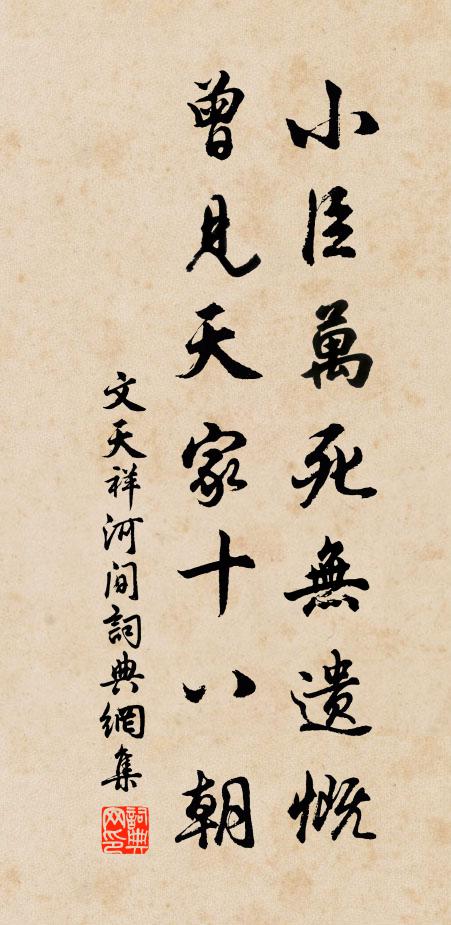 小臣萬死無遺慨
曾見天家十八朝
文天祥河間詞典網集
詞典网印